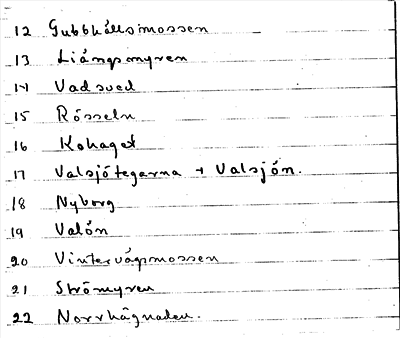 12 Gubbhållsmossen
13 Liångsmyren
14 Vadsved
15 Rösseln
16 Kohaget
17 Valsjötegarna + Valsjön.
18 Nyborg
19 Valön
20 Vintervägsmossen
21 Strömyren
22 Norrhågnaden.